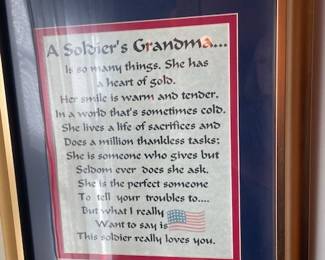 A Soldier's Grandma....
Is so many things. She has
a heart of gold.
Her smile is warm and tender,
In a world that's sometimes cold.
She lives a life of sacrifices and
Does a million thankless tasks:
She is someone who gives but
Seldom ever does she ask.
She is the perfect someone
To tell your troubles to....
But what I really
Want to say is
This soldier really loves you.